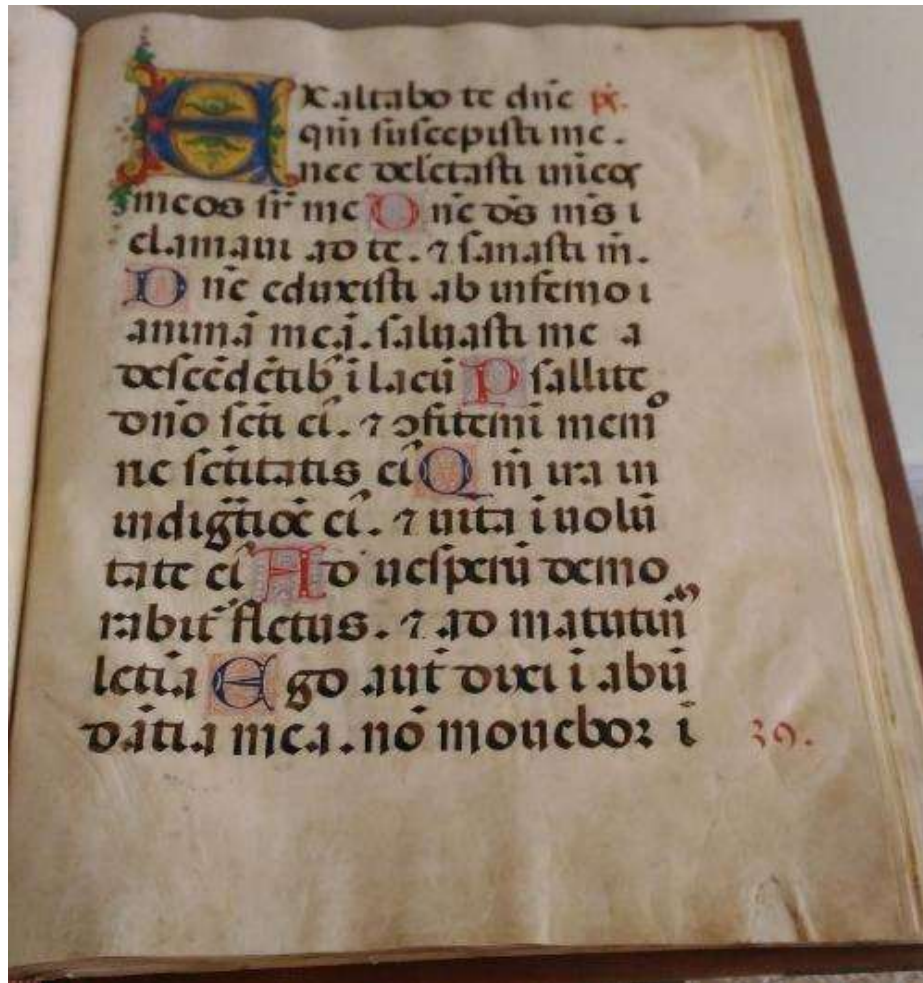 Exaltabo te dn̄e ps̄.
qm̄ suscepisti me.
nec delectasti inīcos
meos sr̄ me D n̄e ds̄ ms̄ i
clamaui ad te. ⁊ sanasti m̄.
D n̄e eduxisti ab inferno i
animā meā. saluasti me a
descēdētib' ī lacū P sallite
dn̄o scti ei'. ⁊ ↄfitemī memo
ne sctitatis ei' Q m̄ ira in
indigtīoe ei'. ⁊ uita ī uolū
tate ei' A d uesperū demo
rabit' fletus. ⁊ ad matutinū
letitia E go aut̄ dixi ī abū
dātia mea. nō mouebor ī
39.